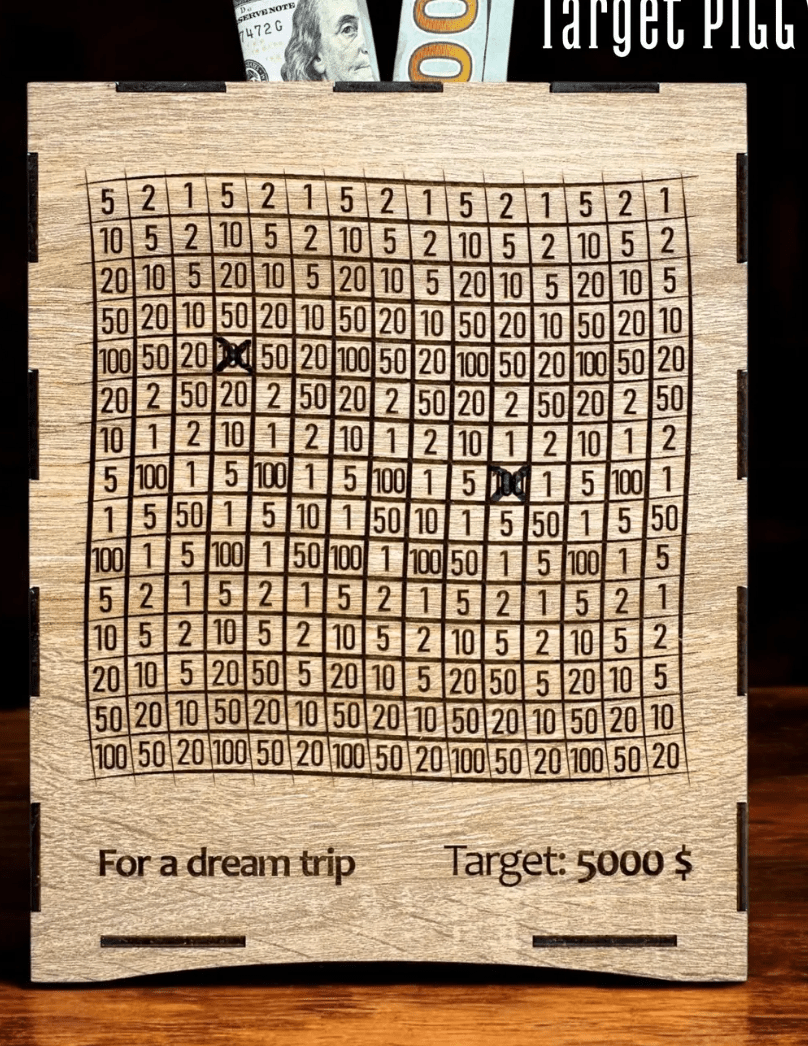 SERVE NOTE
7472 G
Target PIGGY
5 2 1 5 2 1 5 2 1 5 2 1 5 2 1
10 5 2 10 5 2 10 5 2 10 5 2 10 5 2
20 10 5 20 10 5 20 10 5 20 10 5 20 10 5
50 20 10 50 20 10 50 20 10 50 20 10 50 20 10
100 50 20 50 20 100 50 20 100 50 20 100 50 20
20 2 50 20 2 50 20 2 50 20 2 50 20 2 50
10 1 2 10 1 2 10 1 2 10 1 2 10 1 2
5 100 1 5 100 1 5 100 1 5 100 1 5 100 1
1 5 50 1 5 10 1 50 10 1 5 50 1 5 50
100 1 5 100 1 50 100 1 100 50 1 5 100 1 5
5 2 1 5 2 1 5 2 1 5 2 1 5 2 1
10 5 2 10 5 2 10 5 2 10 5 2 10 5 2
20 10 5 20 50 5 20 10 5 20 50 5 20 10 5
50 20 10 50 20 10 50 20 10 50 20 10 50 20 10
100 50 20 100 50 20 100 50 20 100 50 20 100 50 20
For a dream trip
Target: 5000 $